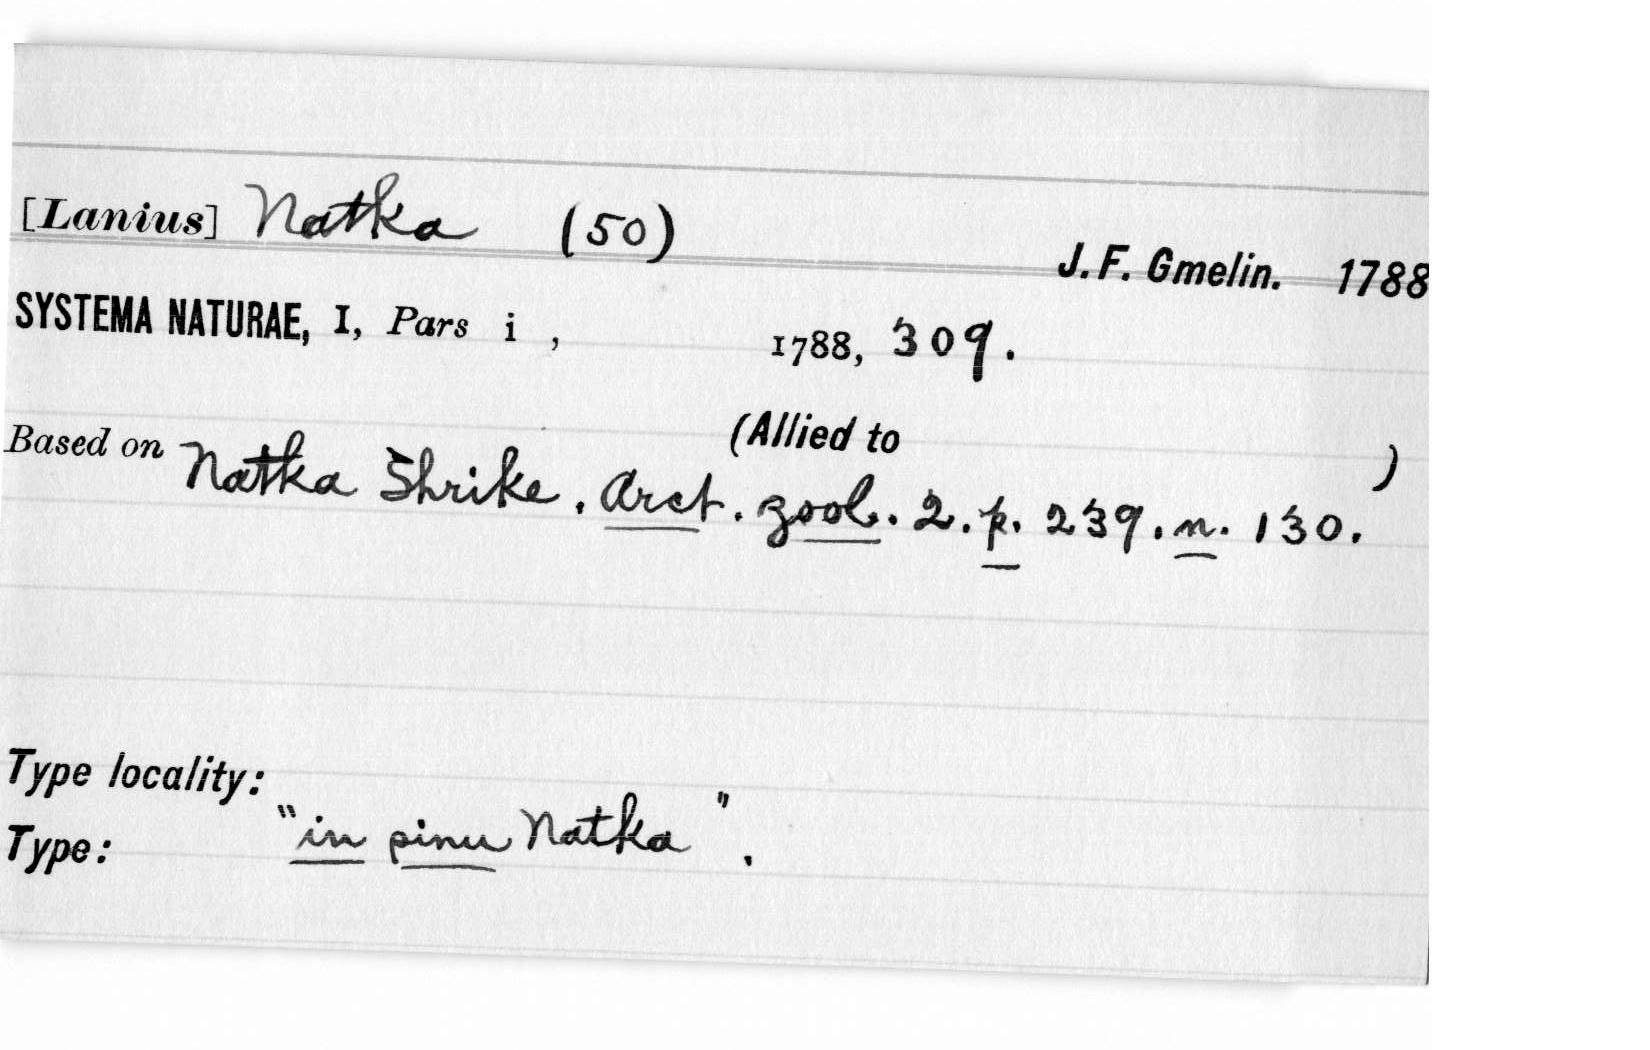 [Lanius] Natka (50)
J. F. Gmelin. 1788
SYSTEMA NATURAE, I, Pars i , 1788, 309.
(Allied to )
Based on Natka Shrike. Arct. zool. 2. p. 239. n. 130.
Type locality:
"in pinu Natka".
Type: